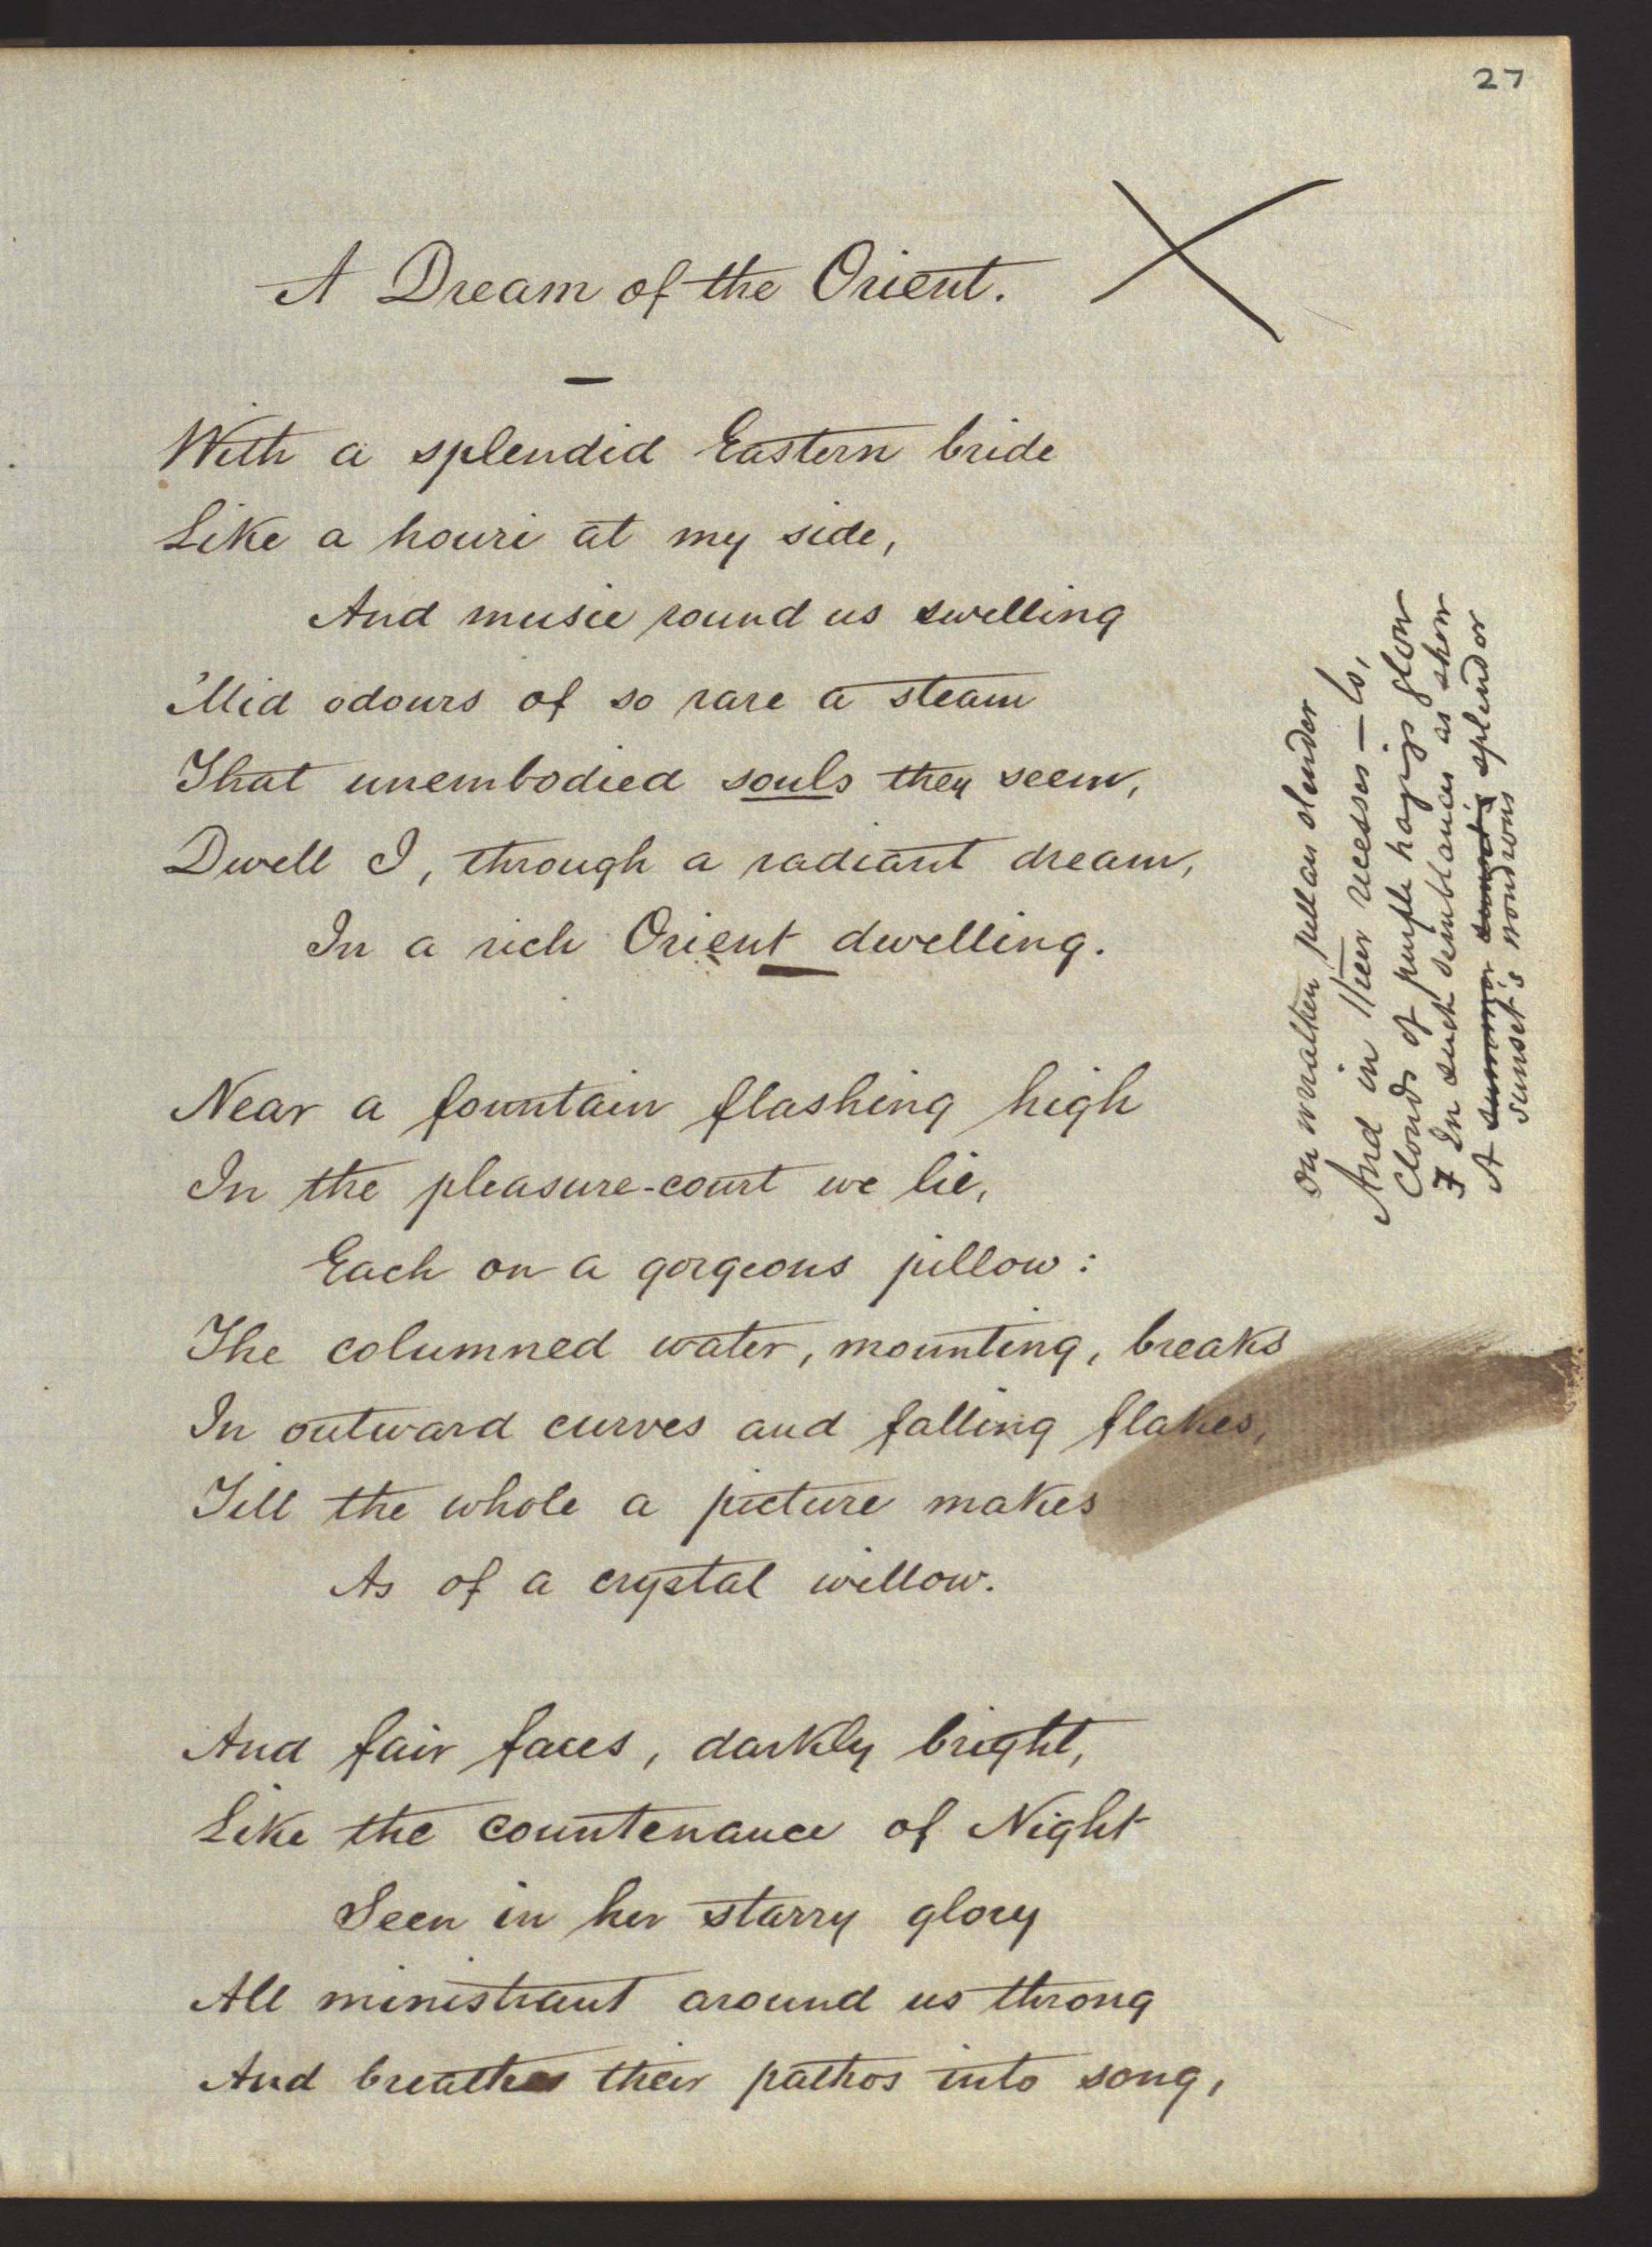 27
A Dream of the Orient.
With a splendid Eastern bride
Like a houri at my side,
And music round us swelling
'Mid odours of so rare a steam
That unembodied souls they seem,
Dwell I, through a radiant dream,
In a rich Orient dwelling.
Near a fountain flashing high
In the pleasure-court we lie,
Each on a gorgeous pillow:
The columned water, mounting, breaks
In outward curves and falling flakes,
Till the whole a picture makes
As of a crystal willow.
And fair faces, darkly bright,
Like the countenance of Night
Seen in her starry glory
All ministrant around us throng
And breathe their pathos into song,
On wreathen pillars slender
And in their recesses — lo,
Clouds of purple hangings glow
In such semblances as show
A summer sunset's splendor
sunset's wondrous